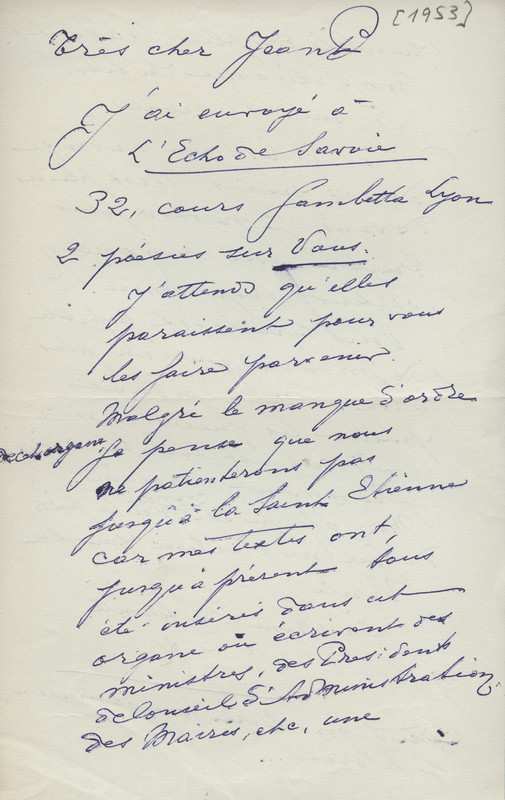 [1953]
Très cher Jean
J'ai envoyé à
L'Echo de Savoie
32, cours Gambetta Lyon
2 poésies sur Vous.
J'attends qu'elles
paraissent pour vous
les faire parvenir.
Malgré le manque d'ordre
de cet organe je pense que nous
ne patienterons pas
jusqu'à la Saint Etienne
car mes textes ont,
jusqu'à présent tous
été insérés dans cet
organe où écrivent des
ministres, des Présidents
de Conseils d'Administration,
des Maires, etc, une